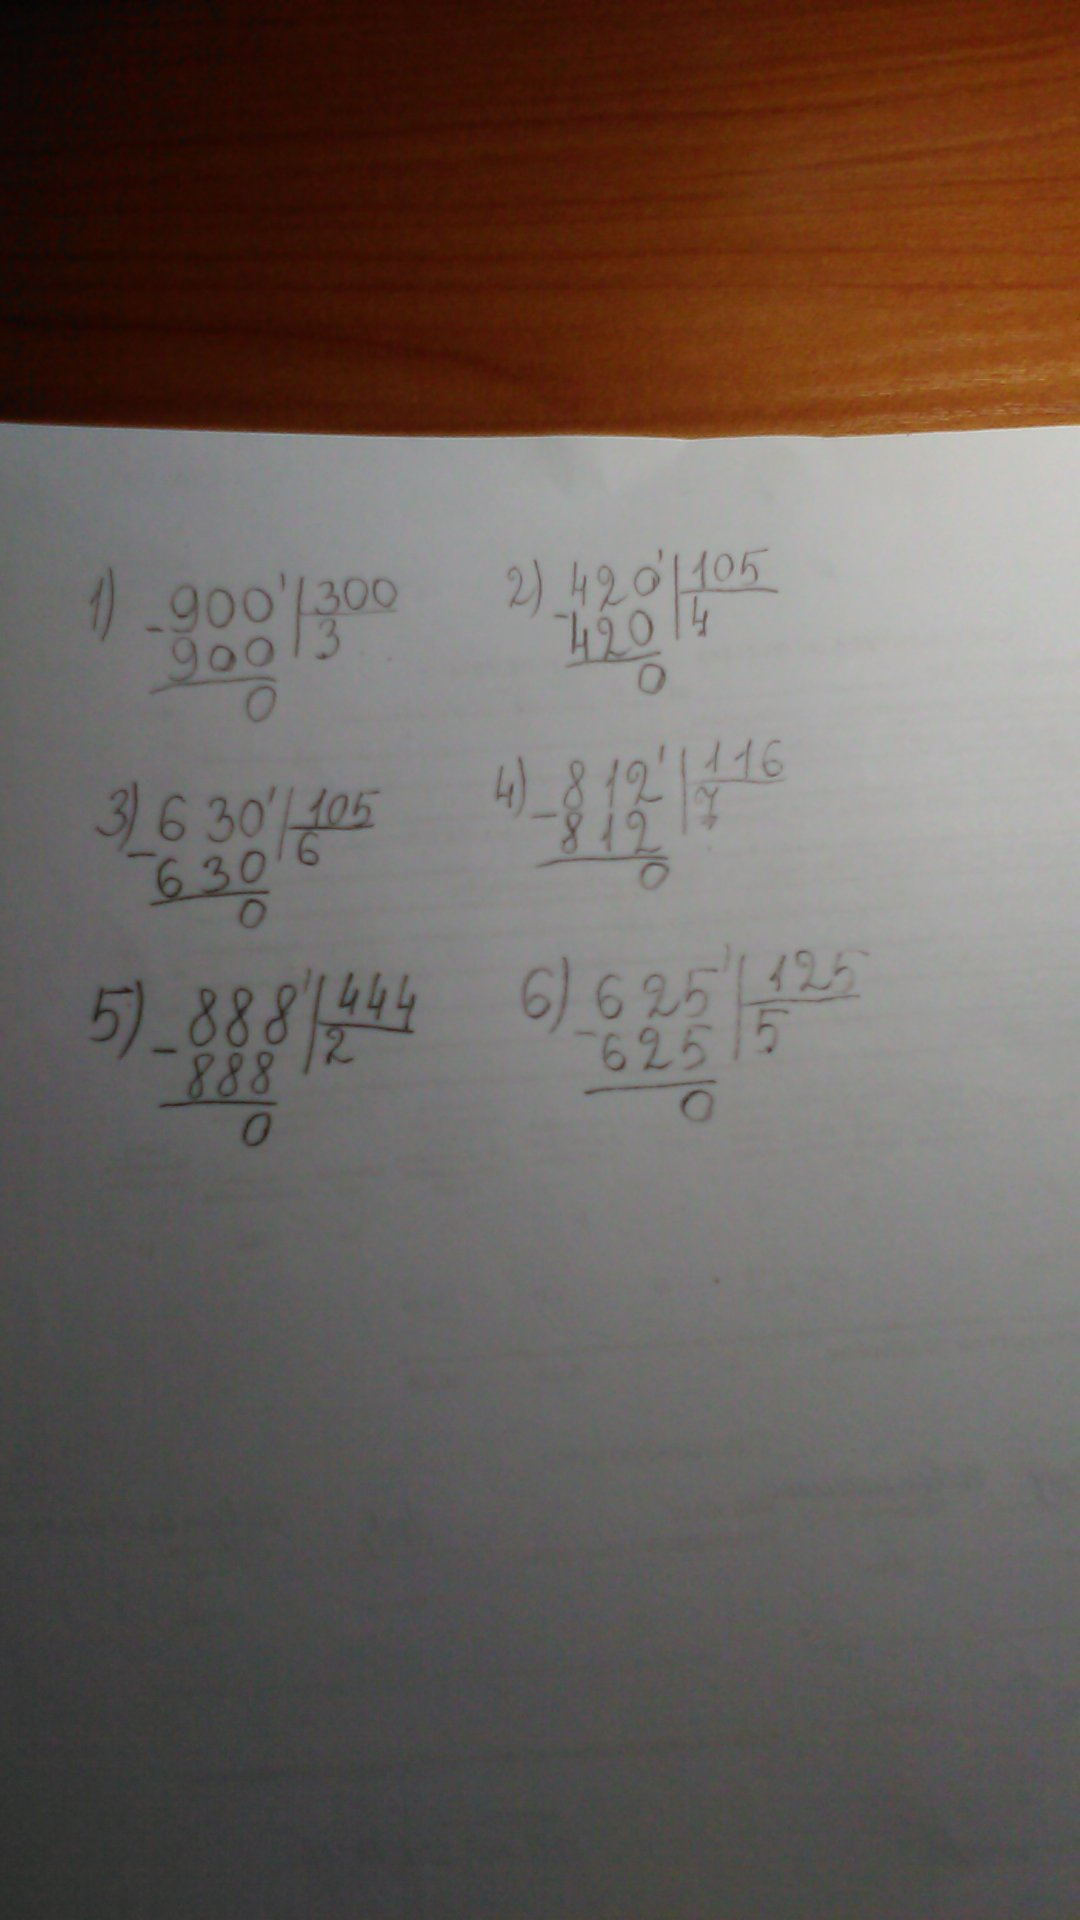 1) -900' | 300
900 | 3
0
2) -420' | 105
420 | 4
0
3) -630' | 105
630 | 6
0
4) -812' | 116
812 | 7
0
5) -888' | 444
888 | 2
0
6) -625' | 125
625 | 5
0